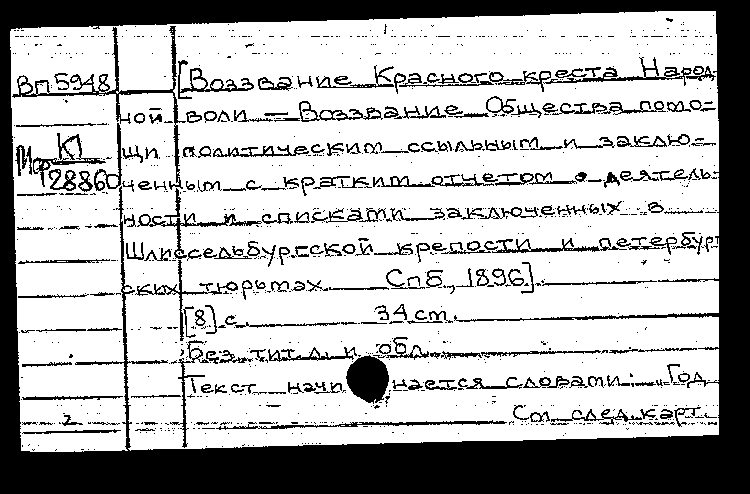 Вп5948 [Воззвание Красного креста Народ-
ной воли — Воззвание Общества помо-
Мф К1/128860
щи политическим ссыльным и заклю-
ченным с кратким отчетом о деятель-
ности и списками заключенных в
Шлиссельбургской крепости и петербург
ских тюрьмах. Спб., 1896].
[8] с. 34 ст.
Без тит. л. и обл.
Текст начинается словами: Год
2 См. след. карт.